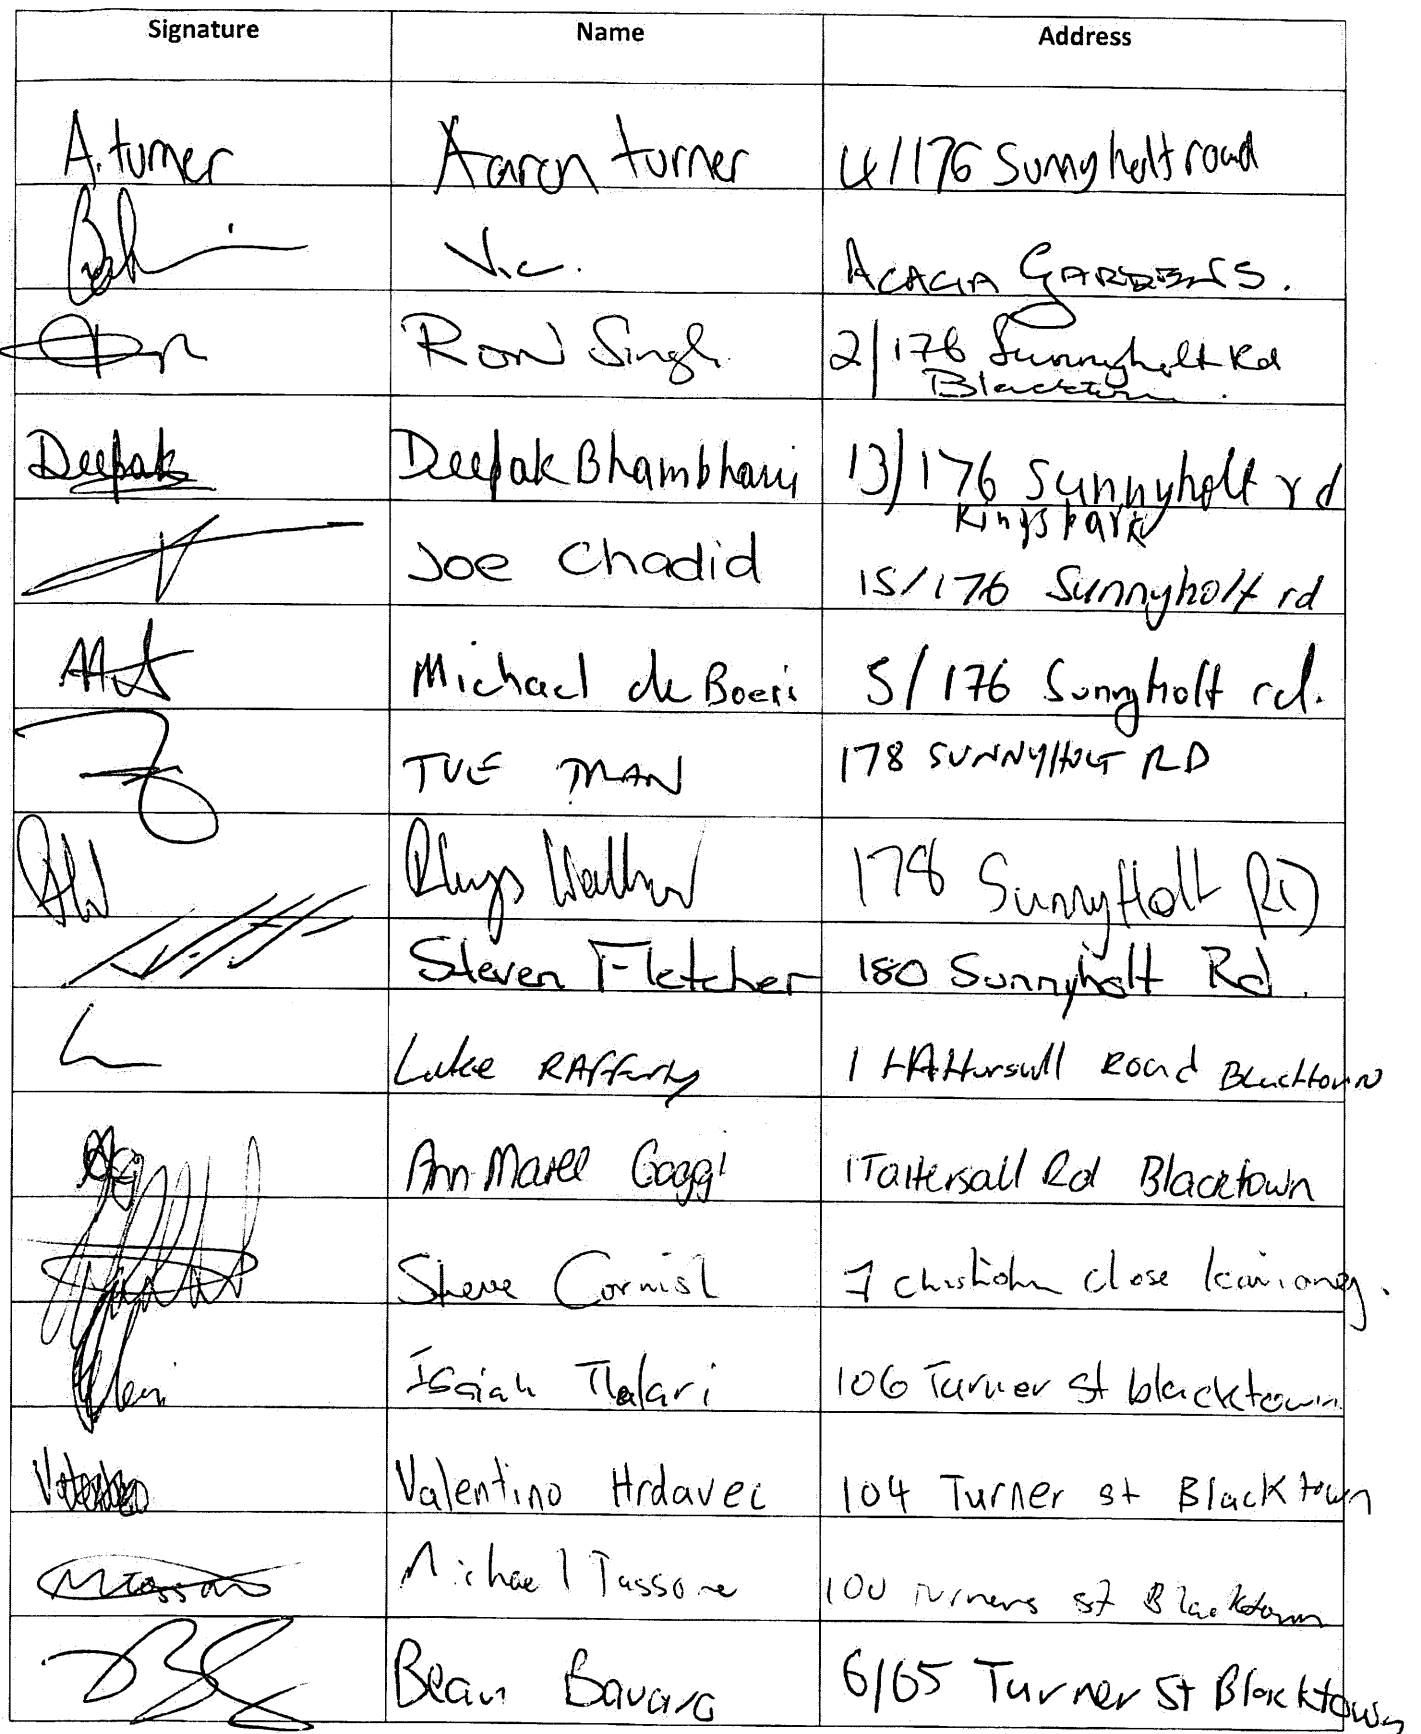 Signature Name Address
A. turner Aaron turner 4/176 Sunnyholt road
Vic. ACACIA GARDENS.
Ron Singh 2/176 Sunnyholt Rd
Blacktown.
Deepak Deepak Bhambhani 13/176 Sunnyholt rd
Kings park
Joe Chadid 15/176 Sunnyholt rd
Michael de Boeri 5/176 Sunnyholt rd.
TUE MAN 178 SUNNYHOLT RD
Rhys Walker 178 SunnyHolt RD
Steven Fletcher 180 Sunnyholt Rd.
Luke RAfferty 1 tAttersall Road Blacktown
Ann Maree Goggi 1 Tattersall Rd Blacktown
Steve Cornish 7 close
Isaiah Tlalari 106 Turner st blacktown
Valentino Hrdavec 104 Turner st Blacktown
Michael Tassone 100 turners st Blacktown
Bean Bavaro 6/65 Turner St Blacktown